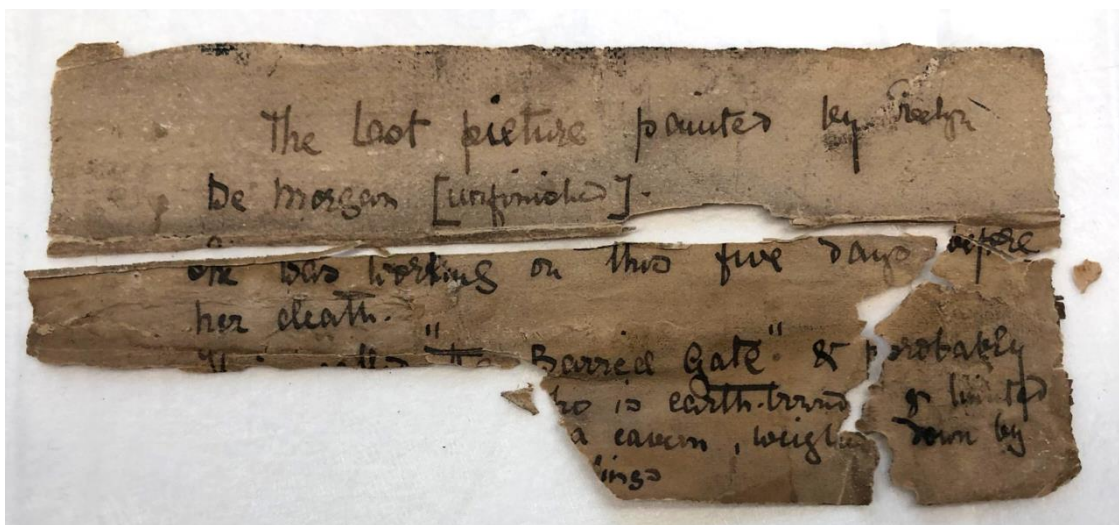 The Last picture painted by Evelyn
De Morgan [unfinished].
She was working on this five days before
her death.
"The Barred Gate" & probably
who is earth-bound & limited
a cavern, weighed down by